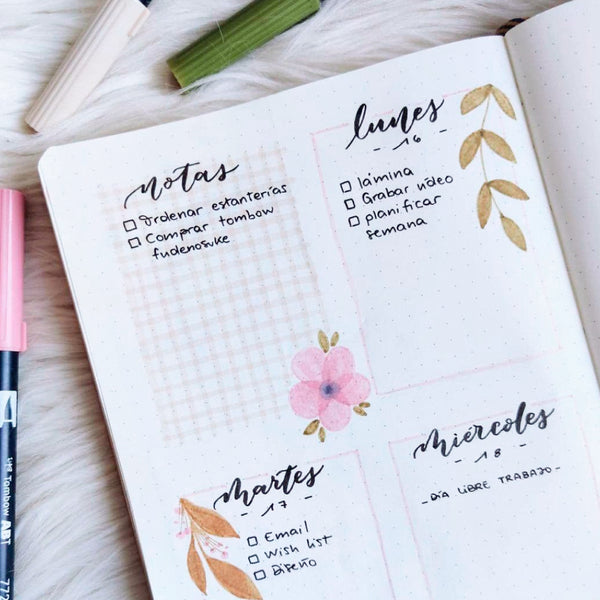 notas
□ Ordenar estanterías
□ Comprar tombow
fudenosuke
lunes
- 16 -
□ lámina
□ Grabar vídeo
□ planificar
semana
martes
- 17 -
□ Email
□ Wish list
□ Diseño
miércoles
- 18 -
- DÍA LIBRE TRABAJO -
Tombow ABT
772